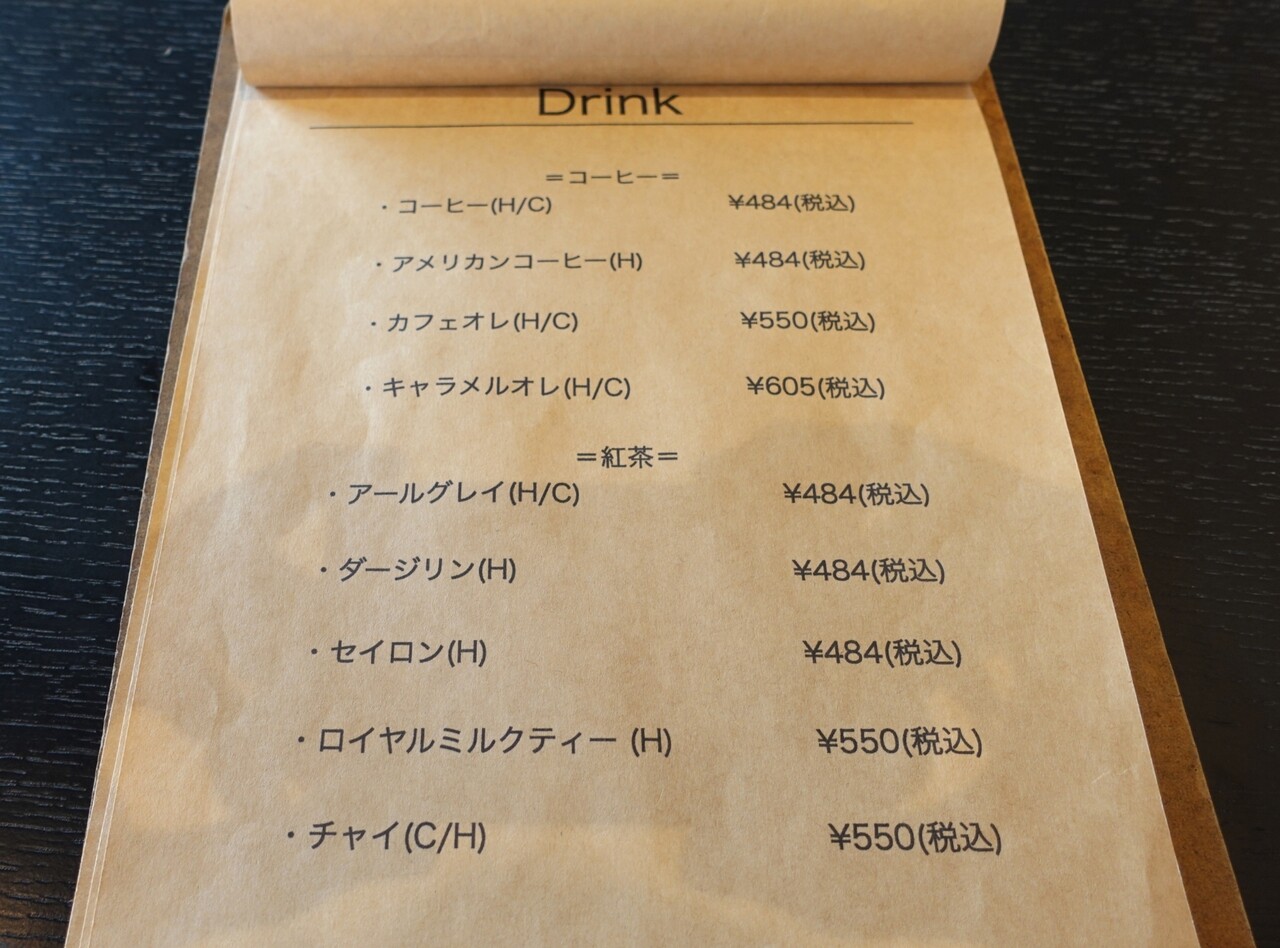 Drink
＝コーヒー＝
・コーヒー(H/C) ¥484(税込)
・アメリカンコーヒー(H) ¥484(税込)
・カフェオレ(H/C) ¥550(税込)
・キャラメルオレ(H/C) ¥605(税込)
＝紅茶＝
・アールグレイ(H/C) ¥484(税込)
・ダージリン(H) ¥484(税込)
・セイロン(H) ¥484(税込)
・ロイヤルミルクティー (H) ¥550(税込)
・チャイ(C/H) ¥550(税込)